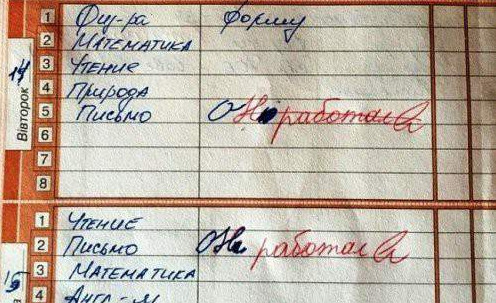 1 Физ-ра Форму
2 Математика
3 Чтение
4 Природа
5 Письмо ОНа работала
6
7
8
14 Вівторок
1 Чтение
2 Письмо ОНа работала
3 Математика
4 Англ-й
15